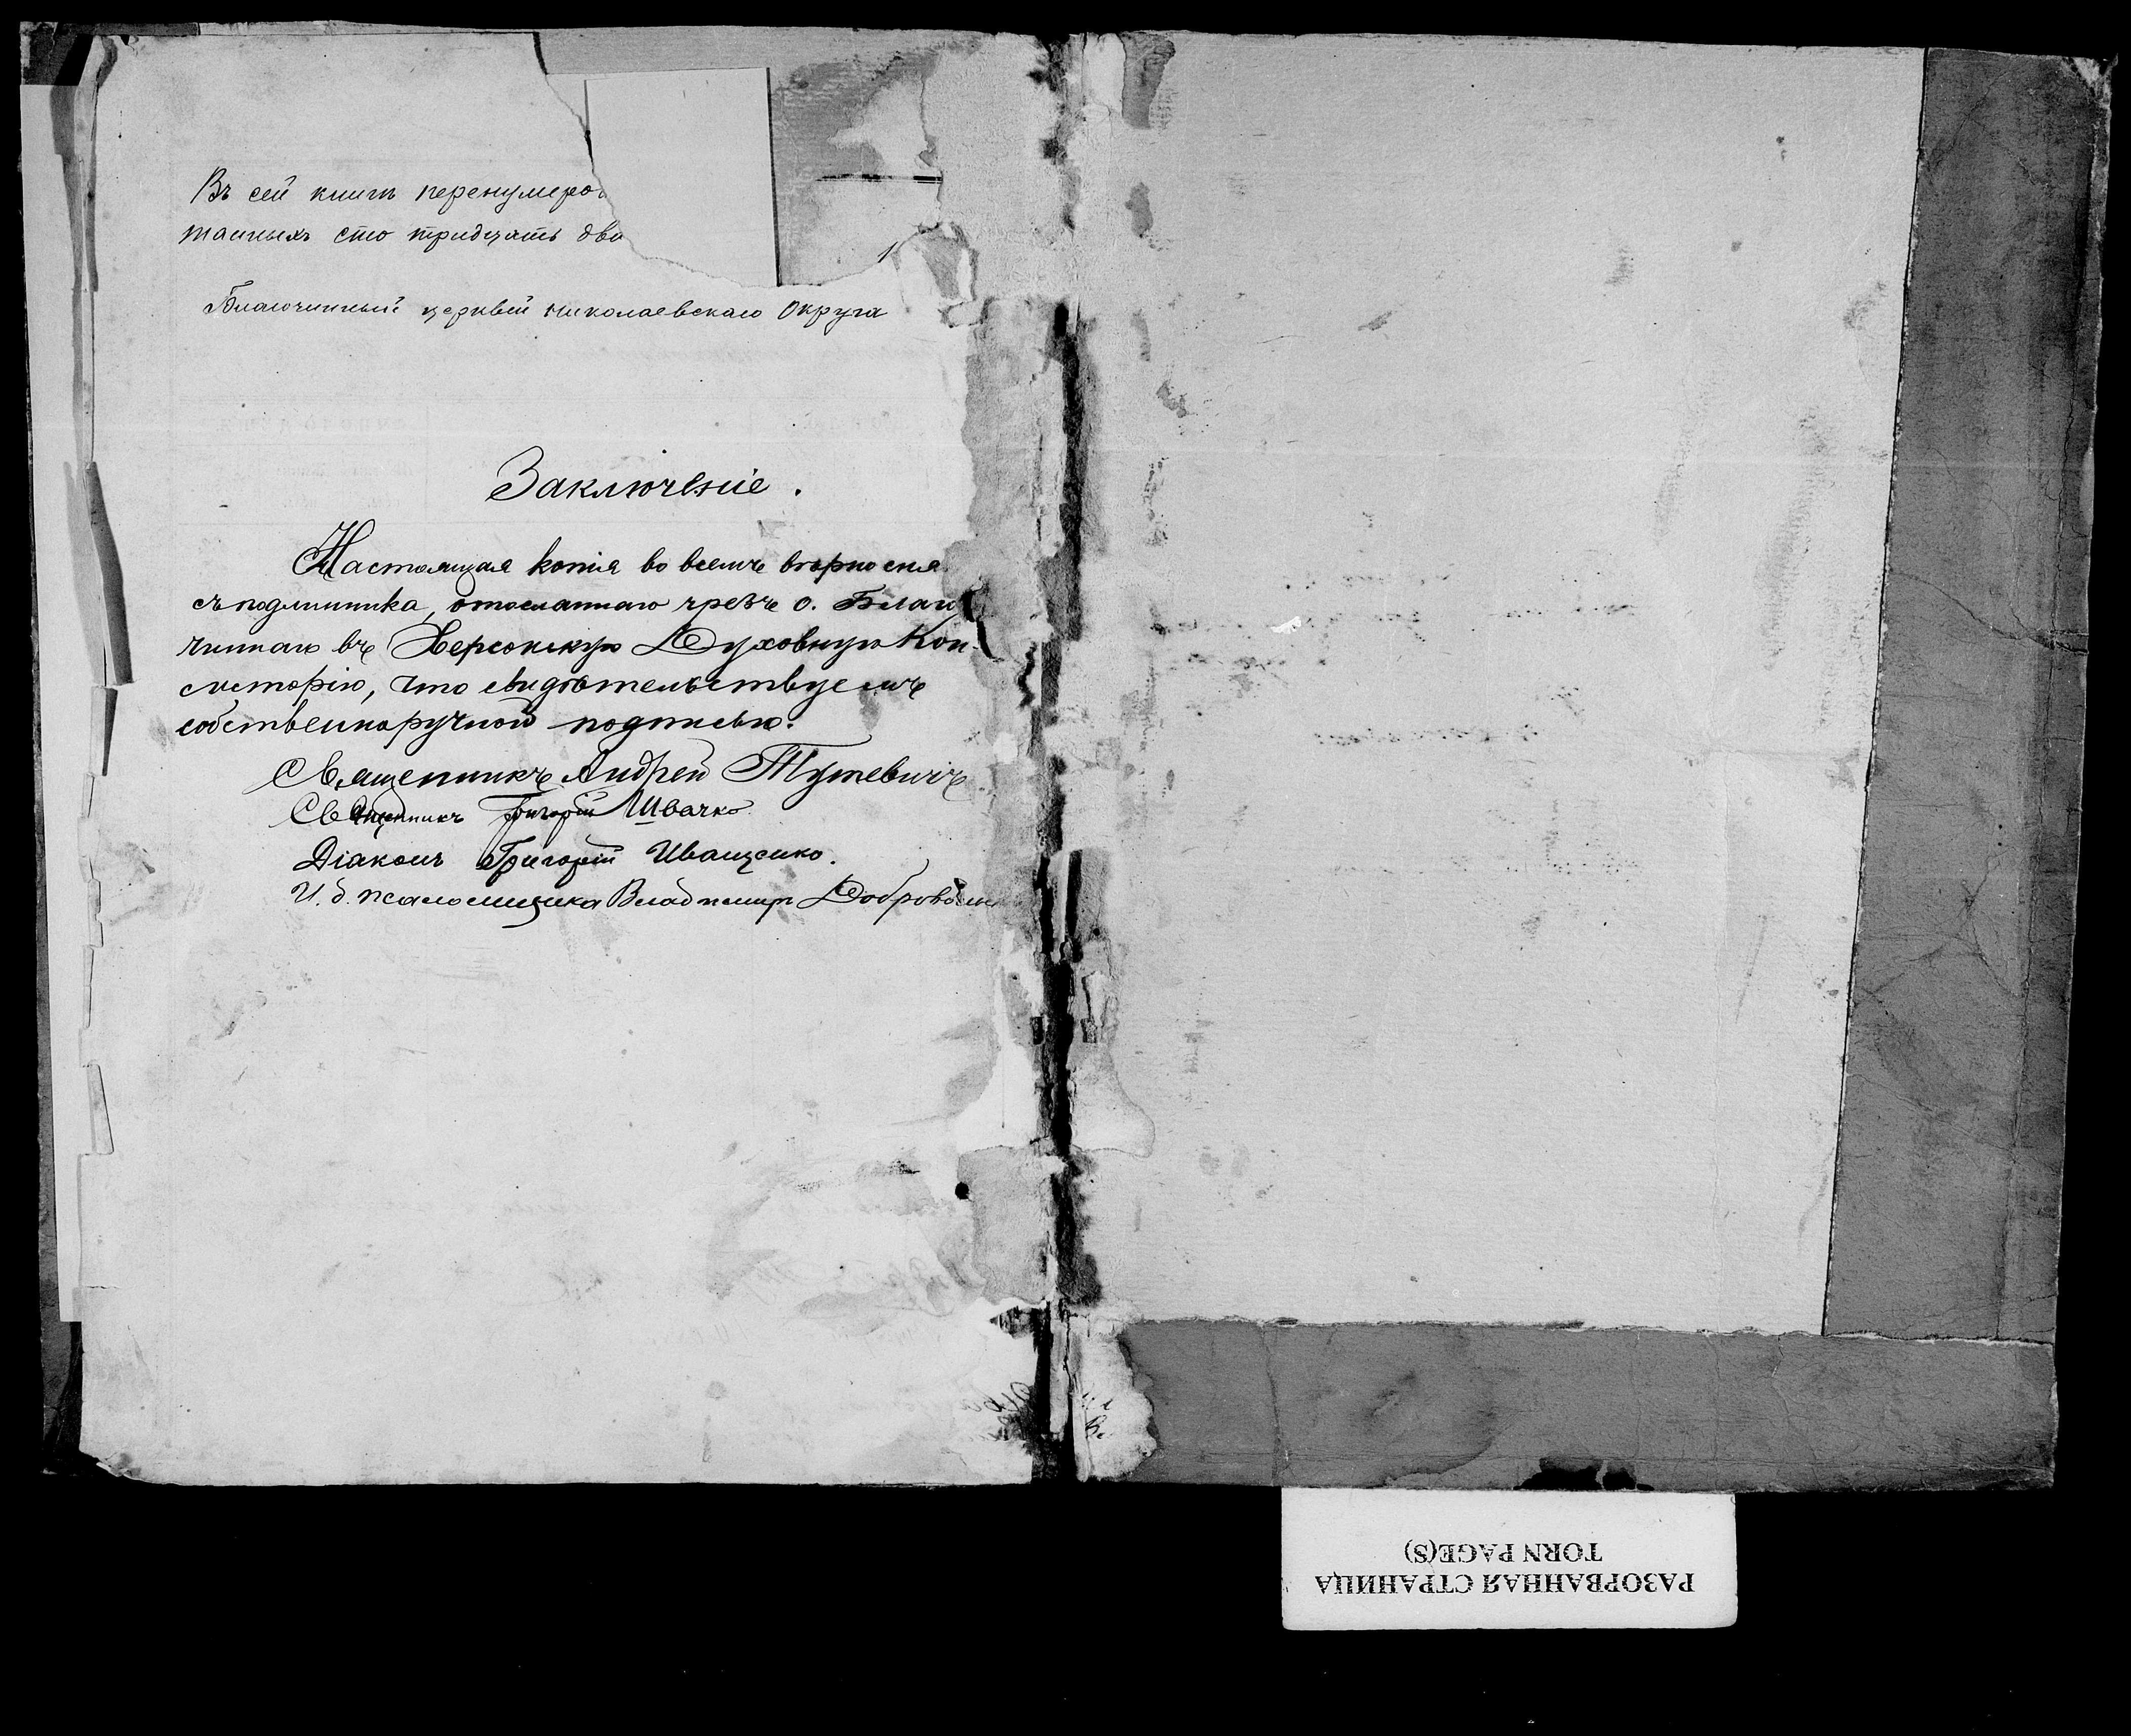 Въ сей книгѣ перенумеров
танныхъ сто тридцать два
Благочинный церквей Николаевскаго Округа
Заключеніе.
Настоящая копія во всемъ вѣрно сня
съ подлинника, отосланнаго чрезъ о. Благо
чиннаго въ Херсонскую Духовную Кон-
систорію, что свидѣтельствуемъ
собственноручной подписью:
Священникъ Андрей
Священникъ Григорій Швачко
Діаконъ Григорій Иващенко.
И. д. псаломщика Владимир Доброволь
РАЗОРВАННАЯ СТРАНИЦА
TORN PAGE(S)